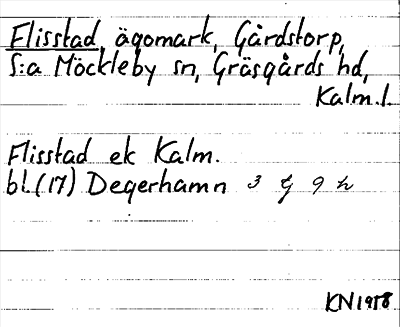 Flisstad, ägomark, Gårdstorp,
S:a Möckleby sn, Gräsgårds hd,
Kalm.l.
Flisstad ek Kalm.
bl.(17) Degerhamn 3 G 9 h
KN1958